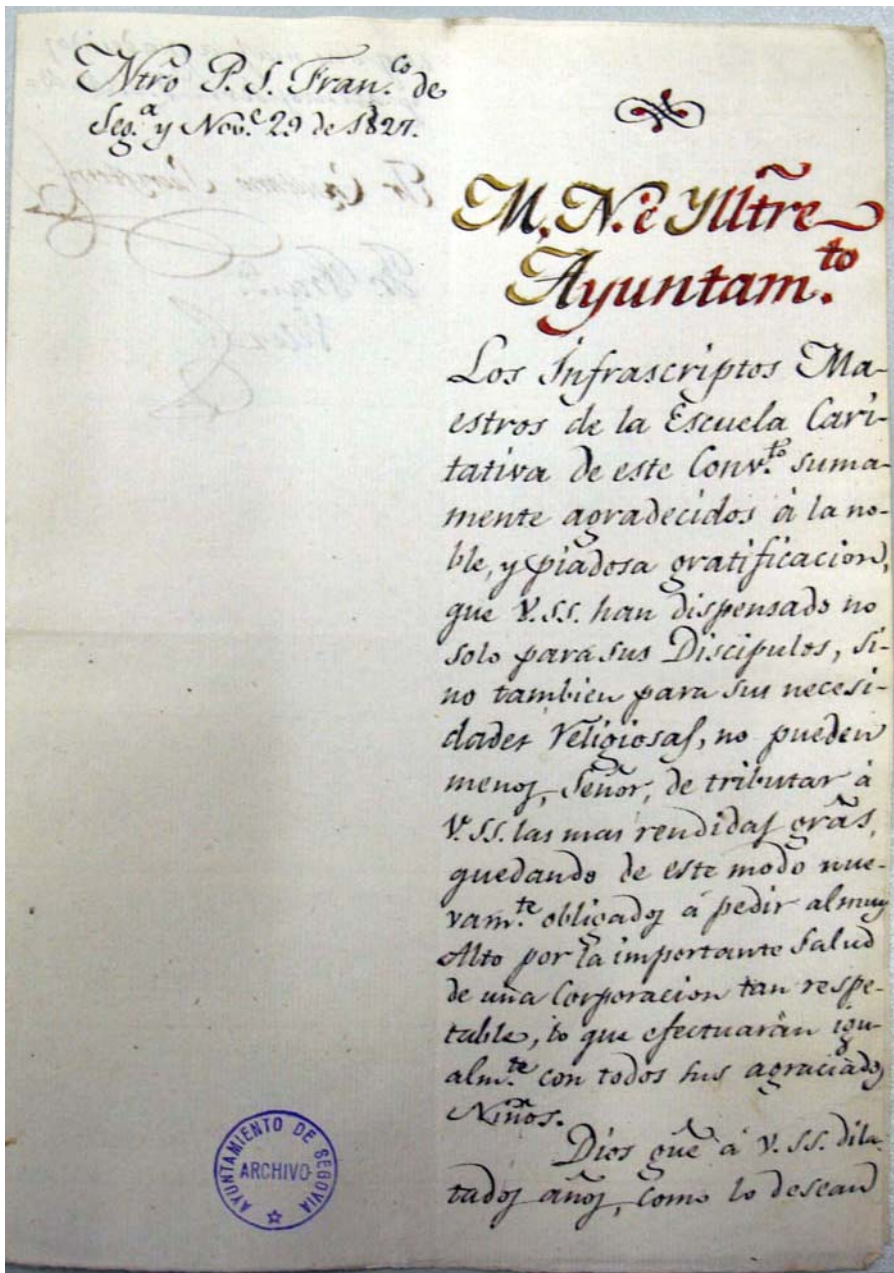 Ntrõ P. S. Fran.co de
Seg.a y Nov.e 29 de 1827.
M. N. é Ylltrẽ
Ayuntam.to
Los Infrascriptos Ma-
estros de la Escuela Cari-
tativa de este Conv.to suma-
mente agradecidos á la no-
ble, y piadosa gratificacion,
que V.SS. han dispensado no
solo para sus Discipulos, si-
no tambien para sus necesi-
dades Religiosas, no pueden
menos, Señor, de tributar á
V.SS. las mas rendidas grãs,
quedando de este modo nue-
vam.te obligados á pedir al muy
Alto por la importante salud
de una Corporacion tan respe-
table, lo que efectuarán igu-
alm.te con todos sus agraciados
Niños.
Dios gũe á V.SS. dila-
tados años, como lo desean
AYUNTAMIENTO DE SEGOVIA
ARCHIVO